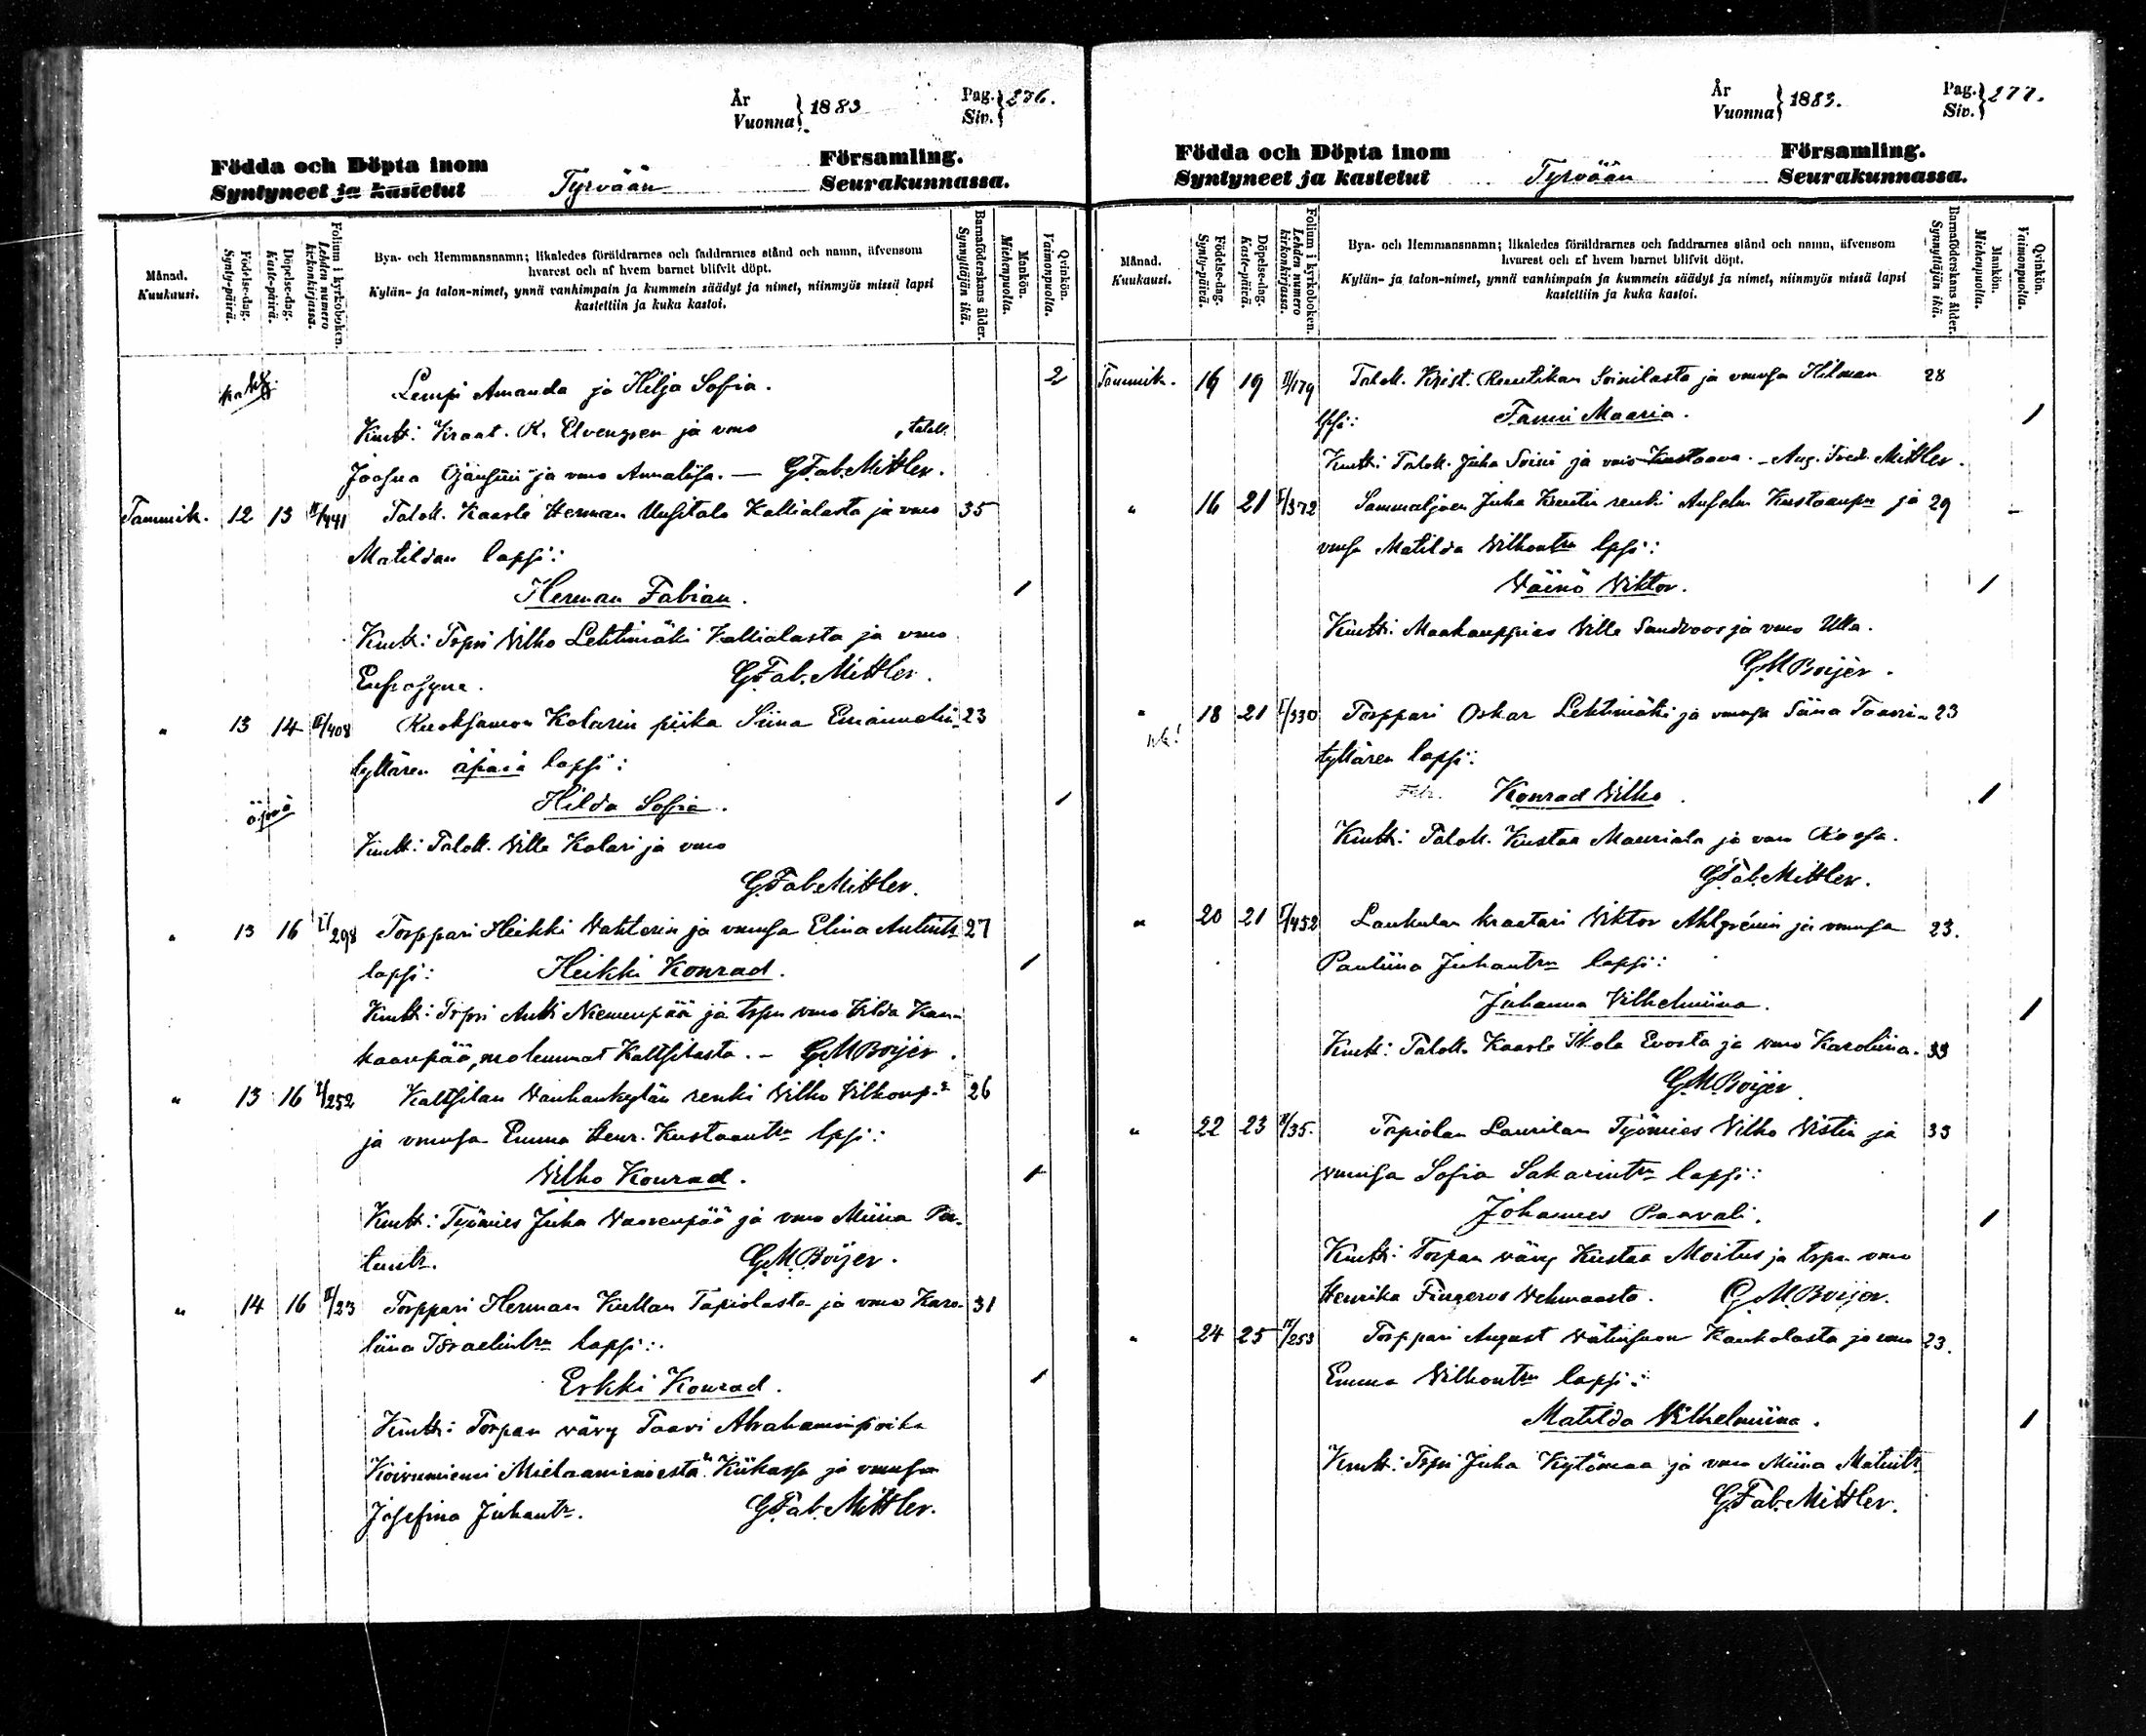 År
Vuonna } 1883
Pag.
Siv. } 276.
Födda och Döpta inom
Syntyneet ja kastetut
Tyrvään
Församling.
Seurakunnassa.
Månad.
Kuukausi.
Födelse-dag.
Synty-päivä.
Döpelse-dag.
Kaste-päivä.
Folium i kyrkoboken.
Lehden numero kirkonkirjassa.
Bya- och Hemmansnamn; likaledes föräldrarnes och faddrarnes stånd och namn, äfvensom
hvarest och af hvem barnet blifvit döpt.
Kylän- ja talon-nimet, ynnä vanhimpain ja kummein säädyt ja nimet, niinmyös missä lapsi
kastettiin ja kuka kastoi.
Barnaföderskans ålder.
Synnyttäjän ikä.
Mankön.
Miehenpuolta.
Qvinkön.
Vaimonpuolta.
Lempi Amanda ja Hilja Sofia. 2
Kmtt: Kraat. K. Elvengren ja vmo , taloll.
Joosua Ojansuu ja vmo Annaliisa. — G Fab. Mittler.
Tammik. 12 13 II/441 Taloll. Kaarle Herman Uusitalo Kallialasta ja vmo 35
Matildan lapsi:
Herman Fabian. 1
Kmtt: Trpri Vilho Lehtimäki Kallialasta ja vmo
Eufrosyne. G Fab. Mittler.
" 13 14 II/408 Ruoksamon Kolarin piika Siina Emanuelin- 23
tyttären äpärä lapsi:
Hilda Sofia. 1
Kmtt: Taloll. Ville Kolari ja vmo
G Fab Mittler.
" 13 16 I/298 Torppari Heikki Vahterin ja vmnsa Elina Antintr 27
lapsi: Heikki Konrad. 1
Kmtt: Trpri Antti Niemenpää ja trpn vmo Hilda Kan-
kaanpää, molemmat Kaltsilasta. – G.M Boijer.
" 13 16 I/252 Kaltsilan Vanhankylän renki Vilho Vilhonp. 26
ja vmnsa Emma Henr. Kustaantrn lpsi:
Vilho Konrad. 1
Kmtt: Työmies Juha Vaarenpää ja vmo Miina
G.M. Boijer.
" 14 16 II/23 Torppari Herman Kullan Tapiolasta ja vmo Karo- 31
liina Israelintrn lapsi:
Erkki Konrad. 1
Kmtt: Torpan vävy Taavi Abrahaminpoika
Koivuniemi Kiikassa ja vmnsa
Josefina Juhantr. G Fab. Mittler.
År
Vuonna } 1883.
Pag.
Siv. } 277.
Födda och Döpta inom
Syntyneet ja kastetut
Tyrvään
Församling.
Seurakunnassa.
Månad.
Kuukausi.
Födelse-dag.
Synty-päivä.
Döpelse-dag.
Kaste-päivä.
Folium i kyrkoboken.
Lehden numero kirkonkirjassa.
Bya- och Hemmansnamn; likaledes föräldrarnes och faddrarnes stånd och namn, äfvensom
hvarest och af hvem barnet blifvit döpt.
Kylän- ja talon-nimet, ynnä vanhimpain ja kummein säädyt ja nimet, niinmyös missä lapsi
kastettiin ja kuka kastoi.
Barnaföderskans ålder.
Synnyttäjän ikä.
Mankön.
Miehenpuolta.
Qvinkön.
Vaimonpuolta.
Tammik. 16 19 II/179 Taloll. Krist. Ruutikan Soinilasta ja vmnsa Hilman 28
lpsi: Fanni Maaria. 1
Kmtt: Taloll. Juha Soini ja vmo Kustaava. – Aug. Fred. Mittler.
" 16 21 I/372 Sammaljoen Juha Knuutin renki Anselm Kustaanpn ja 29
vmnsa Matilda Vilhontrn lpsi:
Väinö Viktor. 1
Kmtt: Maakauppias Ville Sandroos ja vmo Ulla.
G M Boijer.
" 18 21 I/330 Torppari Oskar Lehtimäki ja vmnsa Siina Taavin- 23
tyttären lapsi:
Konrad Vilho. 1
Kmtt: Taloll. Kustaa Mauriala ja vmo Roosa.
G Fab. Mittler.
" 20 21 I/452 Laukulan kraatari Viktor Ahlgrénin ja vmnsa 23.
Pauliina Juhantrn lapsi:
Johanna Vilhelmiina. 1
Kmtt: Taloll. Kaarle Skola Evosta ja vmo Karoliina. 33
G.M Boijer
" 22 23 II/35. Tapiolan Laurilan Työmies Vilho Vistin ja 33
vmnsa Sofia Sakarintrn lapsi:
Johannes Paavali. 1
Kmtt: Torpan vävy Kustaa Moitus ja trpn vmo
Henrika Fingeroos Vehmaasta. G M Boijer.
" 24 25 II/253 Torppari August Kaukolasta ja vmo 23.
Emma Vilhontrn lapsi:
Matilda Vilhelmiina. 1
Kmtt: Trpri Juha Kytömaa ja vmo Miina Matintr
G Fab. Mittler.